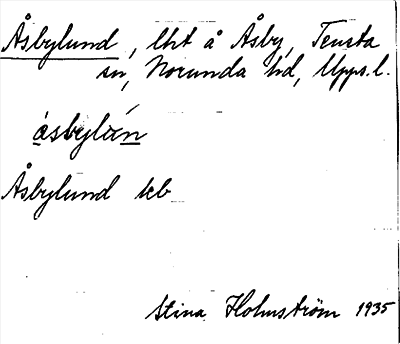 Åsbylund, lht å Åsby, Tensta
sn, Norunda hd, Upps. l.
åsbylún
Åsbylund kb
Stina Holmström 1935